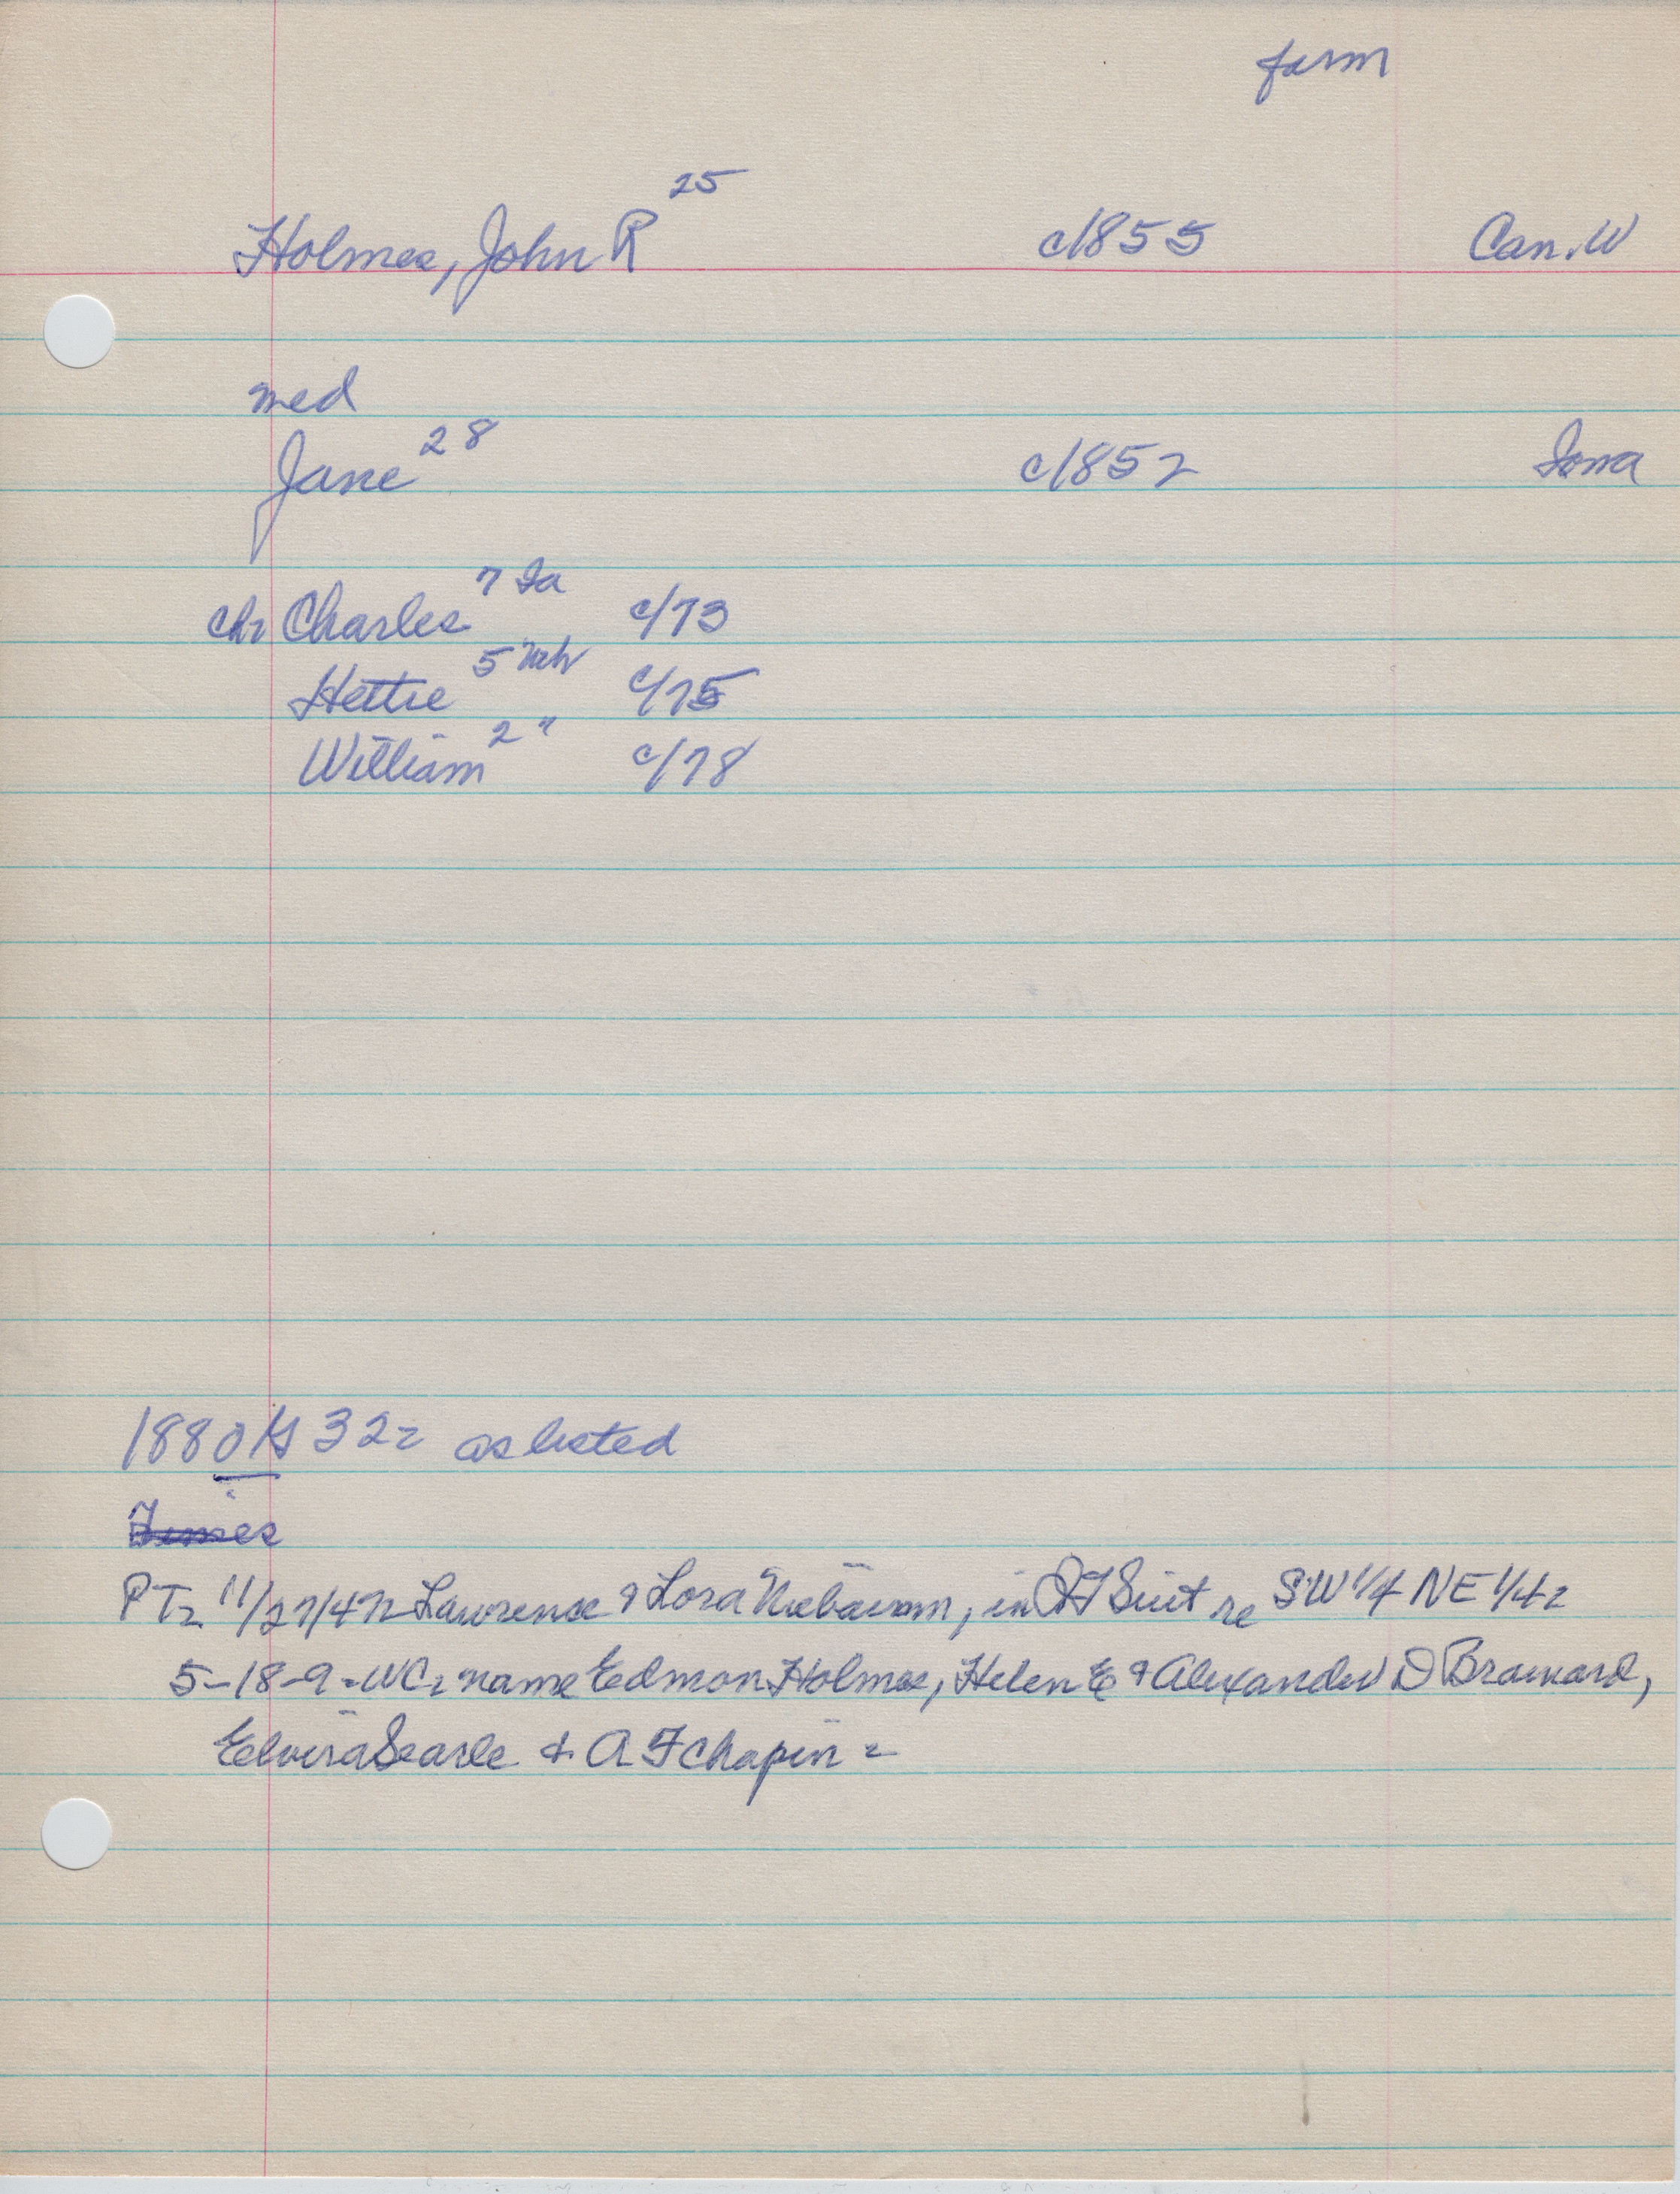 farm
Holmes, John R 25 c1855 Can. W
med
Jane 28 c1852 Iowa
chr Charles 7 Ia c/73
Hettie 5 Neb c/75
William 2 " c/78
1880 32 as listed
Times
PT 11/27/42 Lawrence & Lora in QT Suit re SW 1/4 NE 1/4
5-18-9-WC name Edmon Holmes, Helen E & Alexander D Brainard,
Elvira Searle & A F Chapin